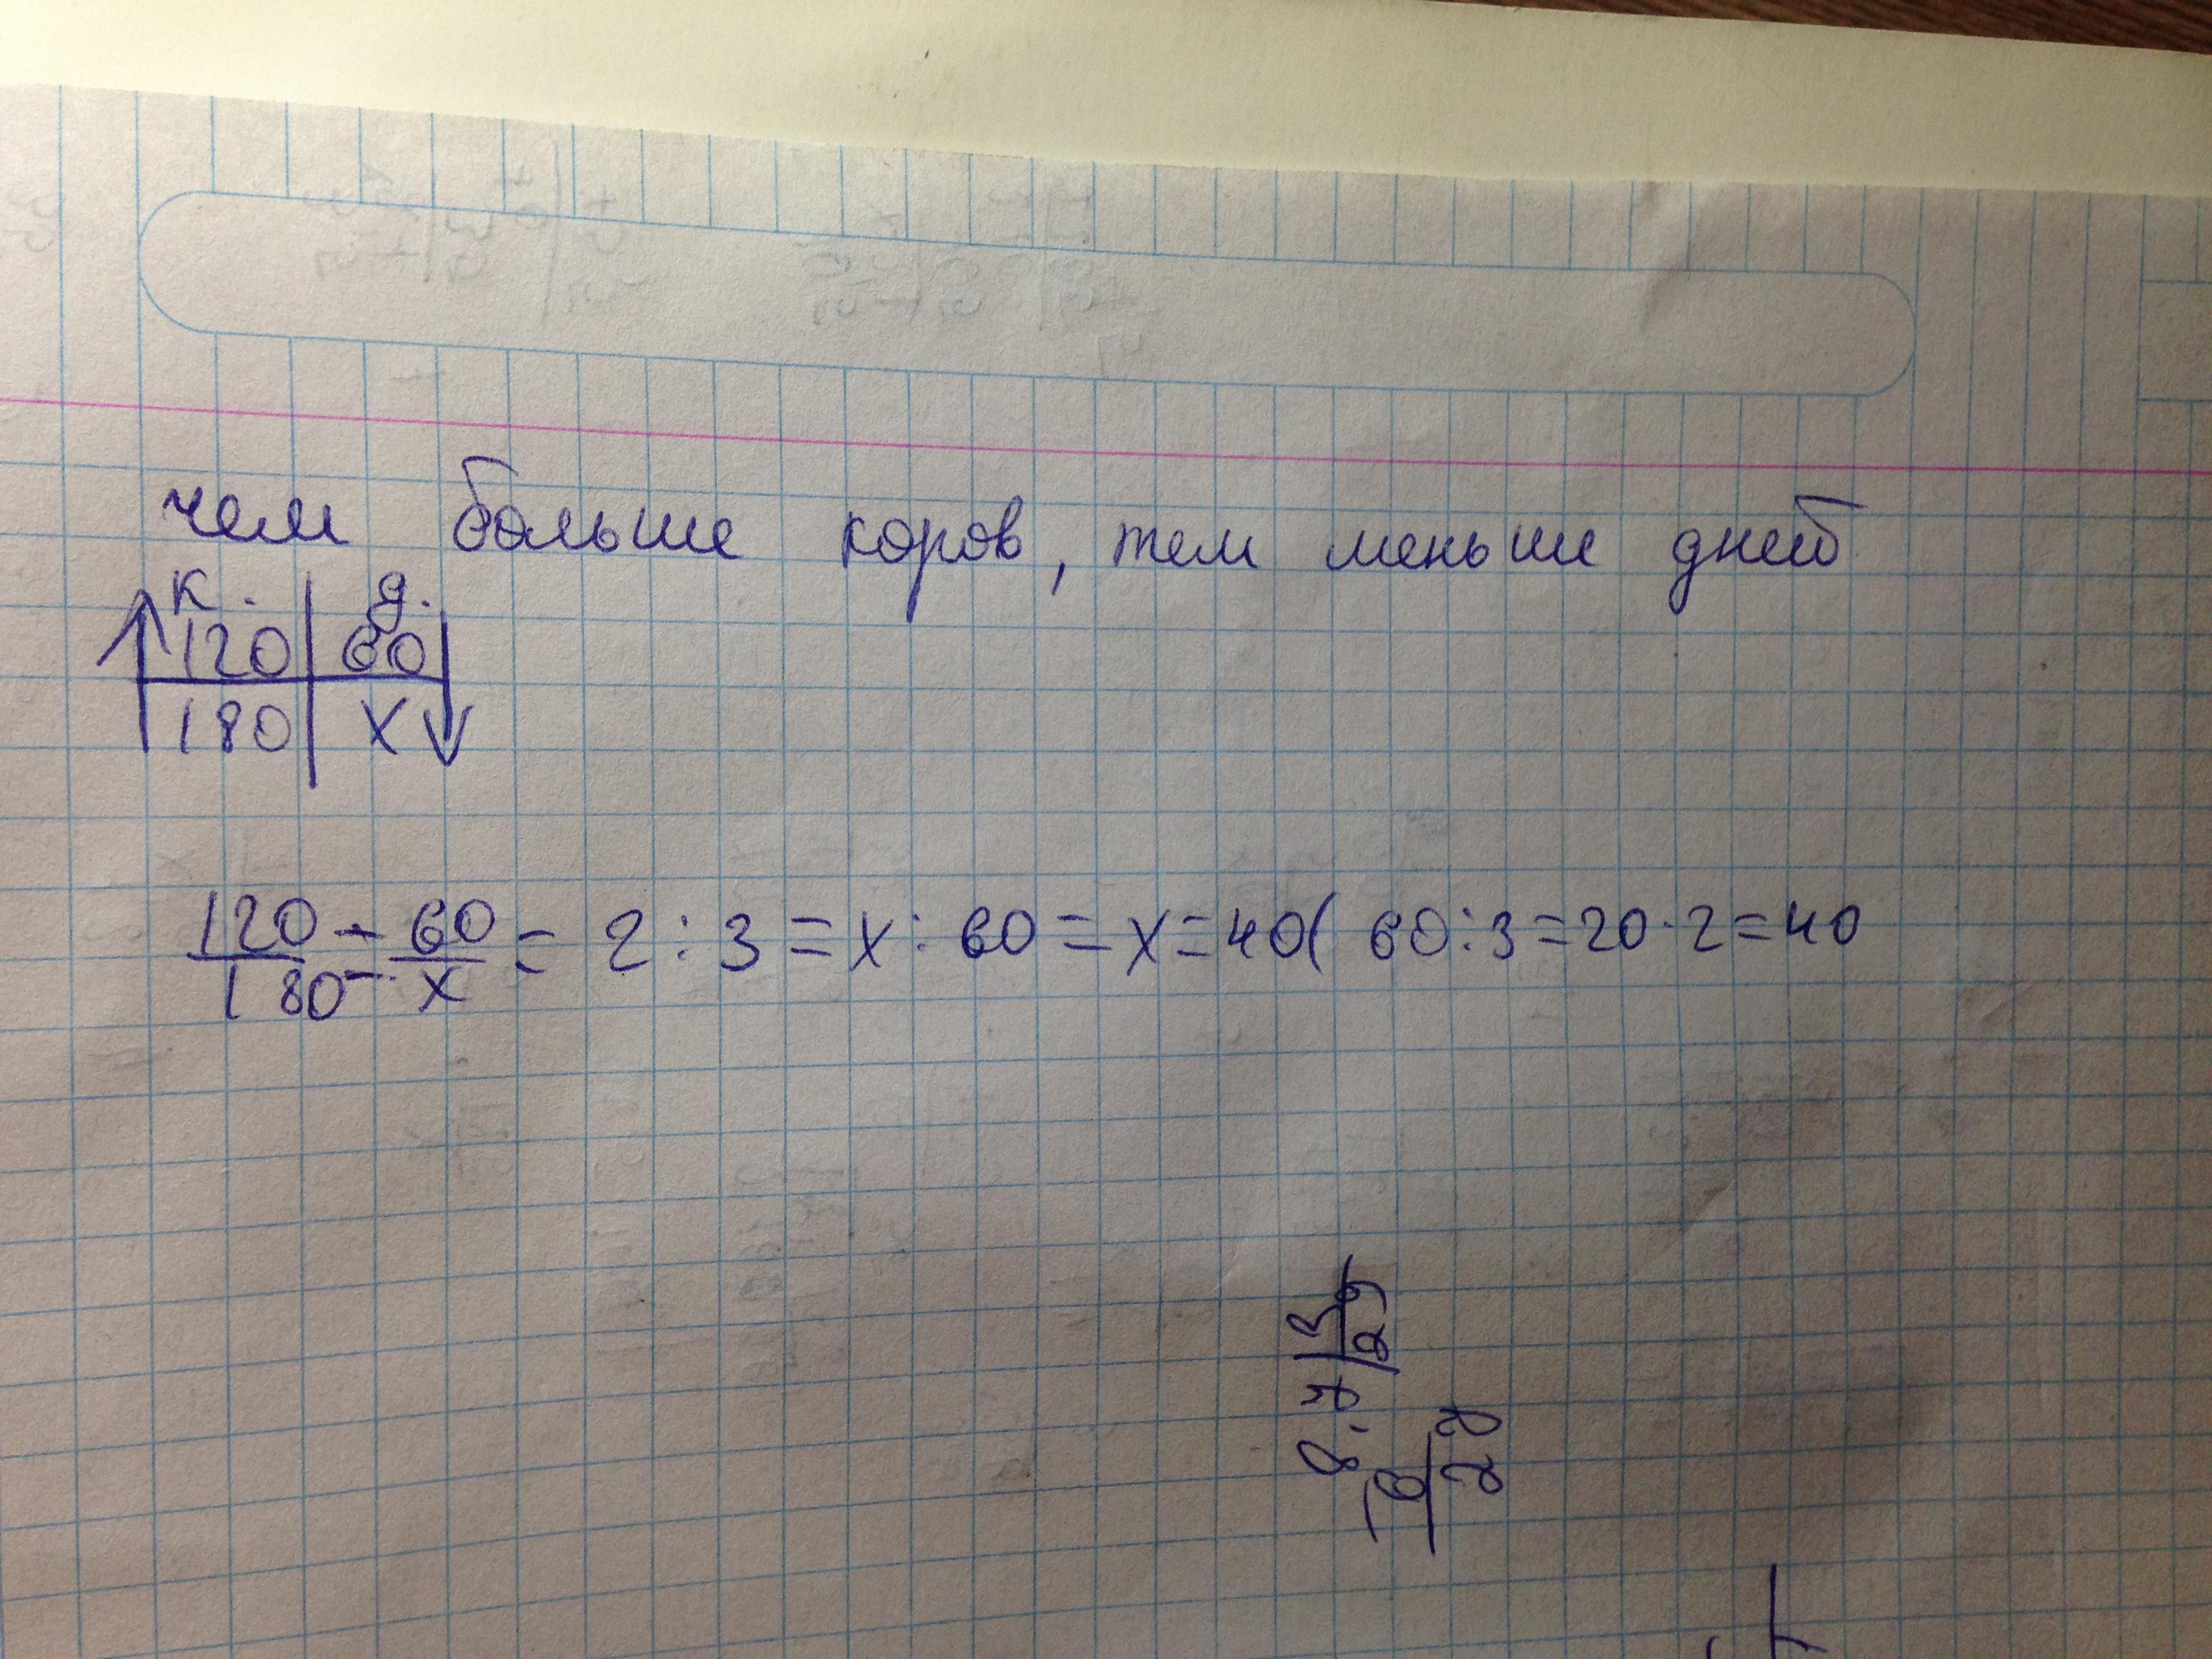 чем больше коров, тем меньше дней
к. д.
120 60
180 х
120/180 = 60/х = 2:3 = х:60 = х=40( 60:3=20·2=40
8,7 3